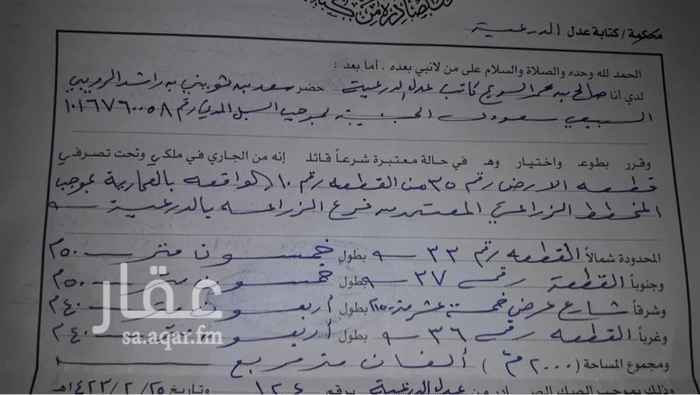 محكمة / كتابة عدل الدرعية
الحمد لله وحده والصلاة والسلام على من لانبي بعده . أما بعد :
لدي انا صالح بن محمد السويح كاتب عدل الدرعية حضر سعد بن ثويني بن راشد
السبيعي سعودي الجنسية بموجب السجل المدني رقم ١٠١٦٧٦٠٠٥٨
وقرر بطوعه واختياره وهو في حالة معتبرة شرعاً قائلاً إنه من الجاري في ملكي وتحت تصرفي
قطعة الارض رقم ٣٥ من القطعه رقم ١٠ الواقعه بالعمارية بموجب
المخطط الزراعي المعتمد من فرع الزراعه بالدرعية
المحدودة شمالاً القطعه رقم ٣٣ بطول خمسون متر ٥٠م
وجنوباً القطعة رقم ٣٧ بطول خمسون متر ٥٠م
وشرقاً شارع عرض خمسة عشر متر ١٥م بطول أربعون متر ٤٠م
وغرباً القطعه رقم ٣٦ بطول أربعون متر ٤٠م
ومجموع المساحة ( ٢٠٠٠م٢ ) ألفان متر مربع
وذلك بموجب الصك الصادر من عدل الدرعية برقم وتاريخ ١٤٢٣/٢/٢٥هـ
عقار
sa.aqar.fm